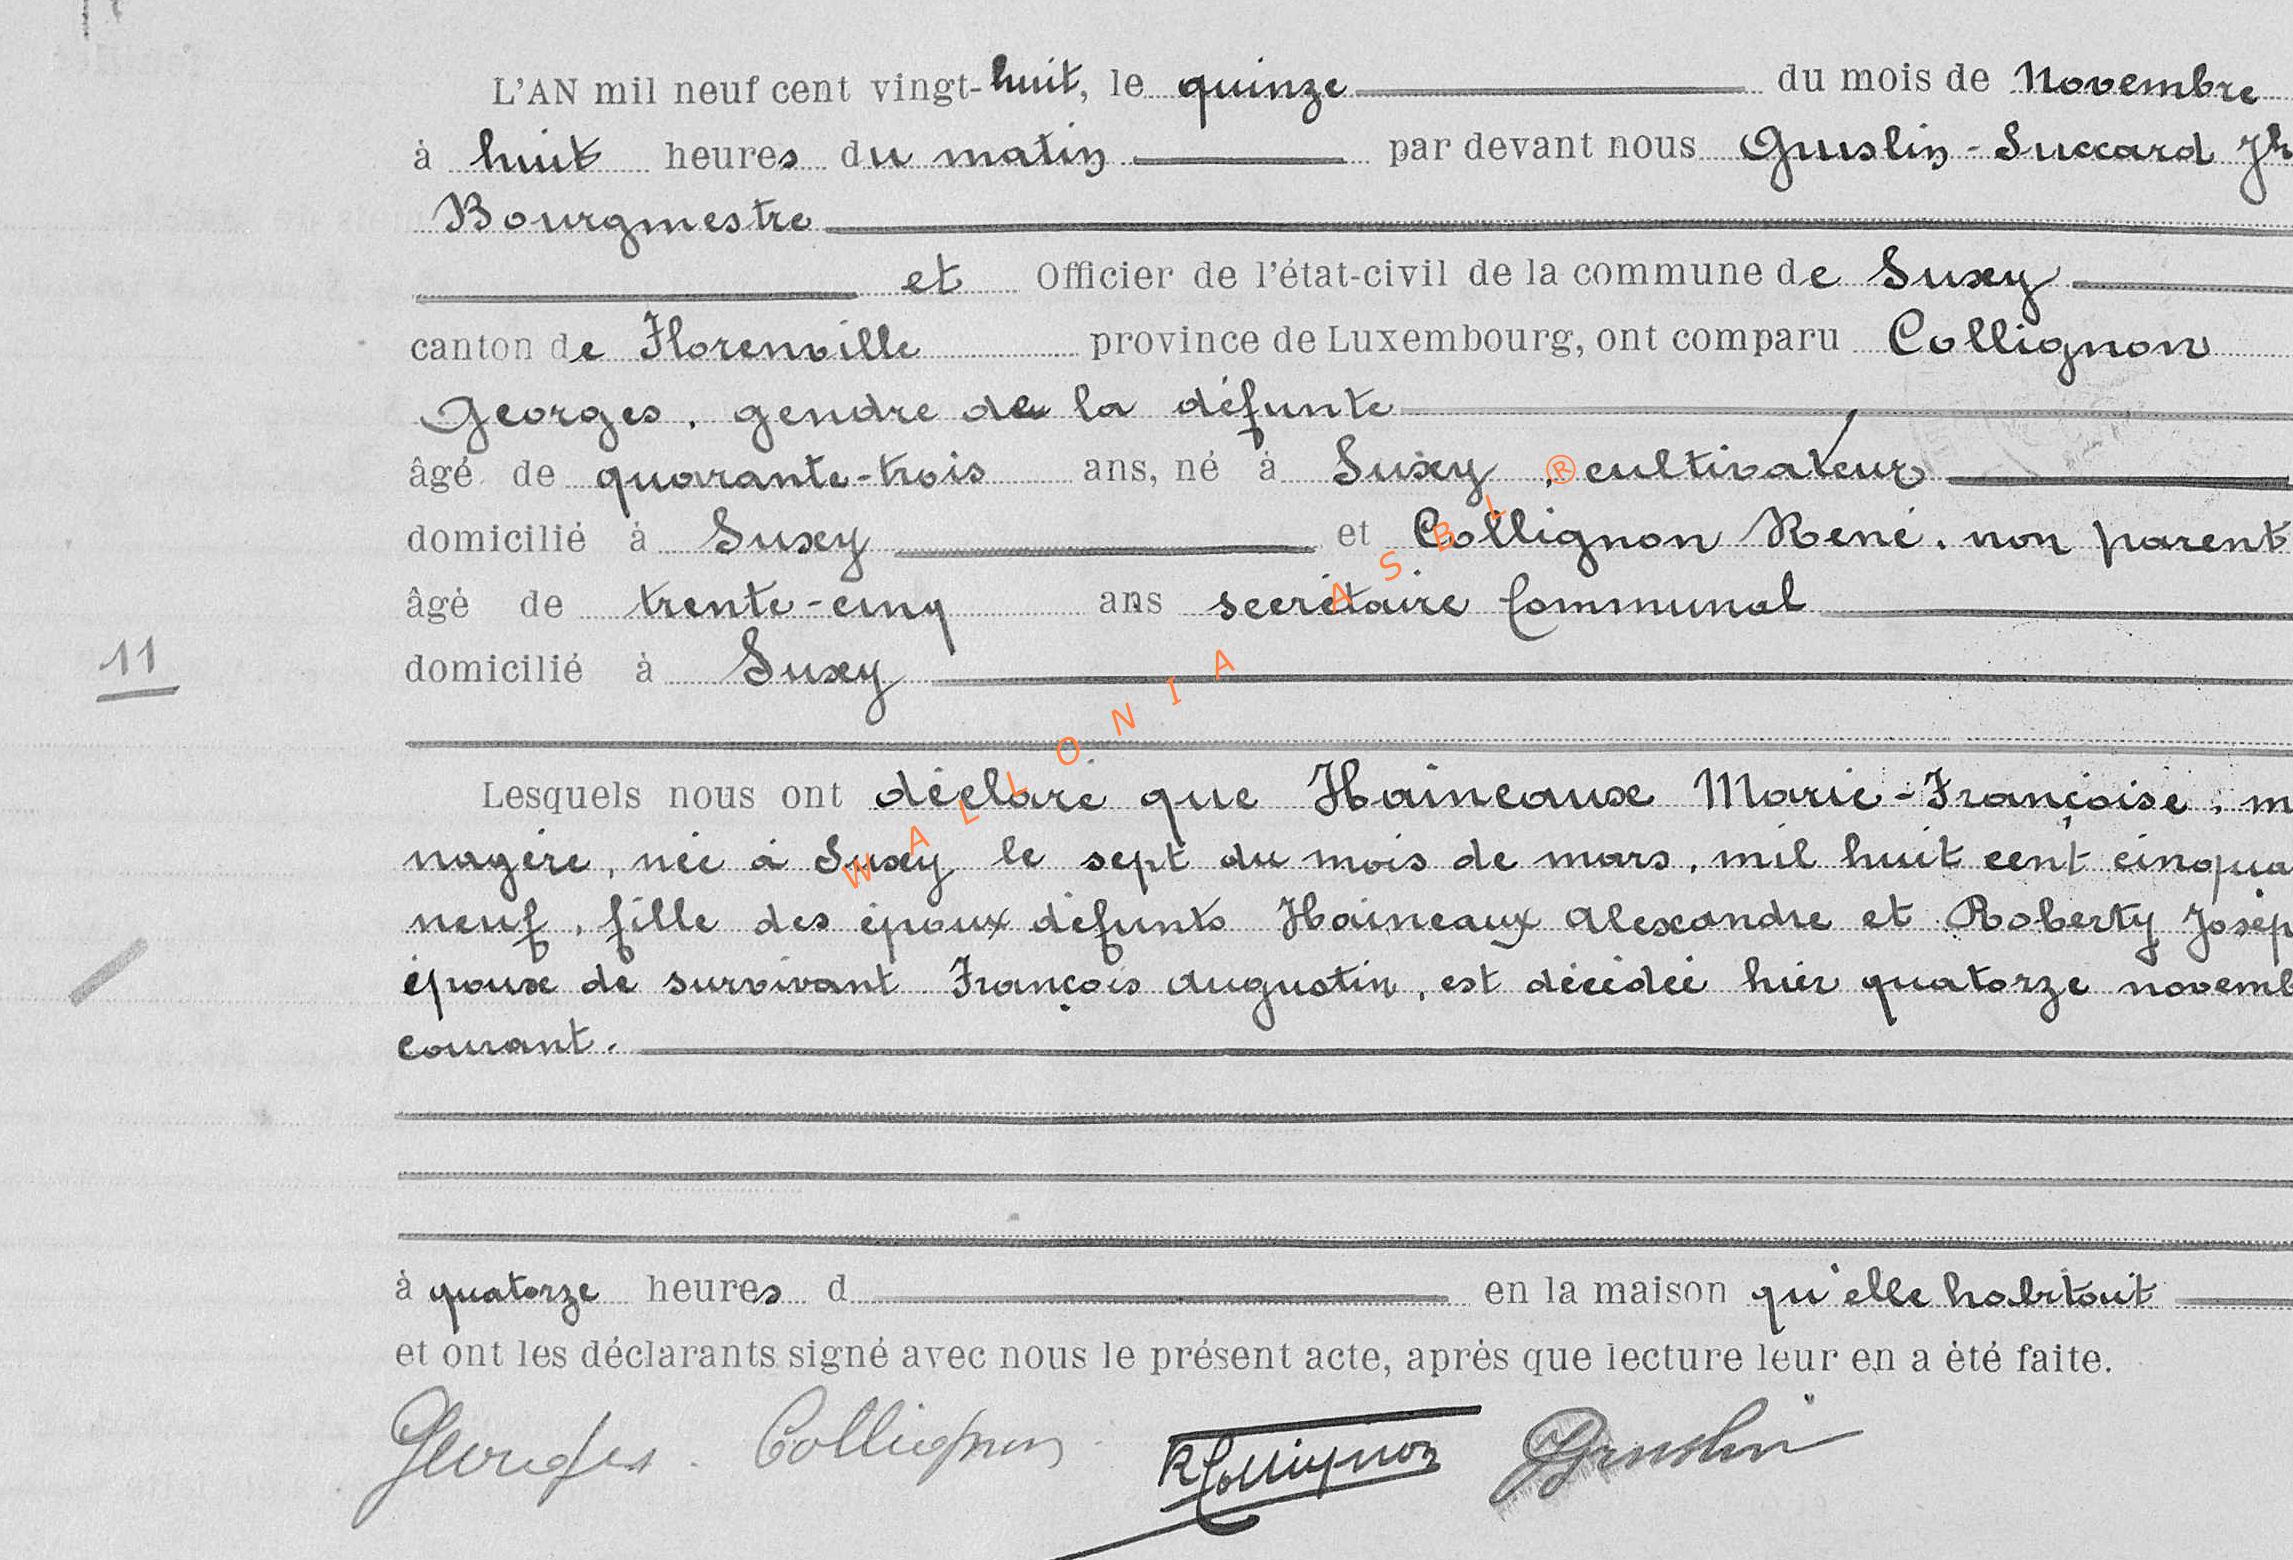 L'AN mil neuf cent vingt-huit, le quinze du mois de Novembre
à huit heures du matin par devant nous Guslin-Succard Jh
Bourgmestre
et Officier de l'état-civil de la commune de Suxy
canton de Florenville province de Luxembourg, ont comparu Collignon
Georges, gendre de la défunte
âgé de quarante-trois ans, né à Suxy, cultivateur
domicilié à Suxy et Collignon René, non parent
âgé de trente-cinq ans secrétaire Communal
11
domicilié à Suxy
Lesquels nous ont déclaré que Haineaux Marie-Françoise, m
nagère, née à Suxy le sept du mois de mars, mil huit cent cinqua
neuf, fille des époux défunts Haineaux Alexandre et Roberty Josép
époux de survivant François Augustin, est décédée hier quatorze novemb
courant.
à quatorze heures d en la maison qu'elle habitait
et ont les déclarants signé avec nous le présent acte, après que lecture leur en a été faite.
Georges Collignon RCollignon
WALLONIA ASBL ®